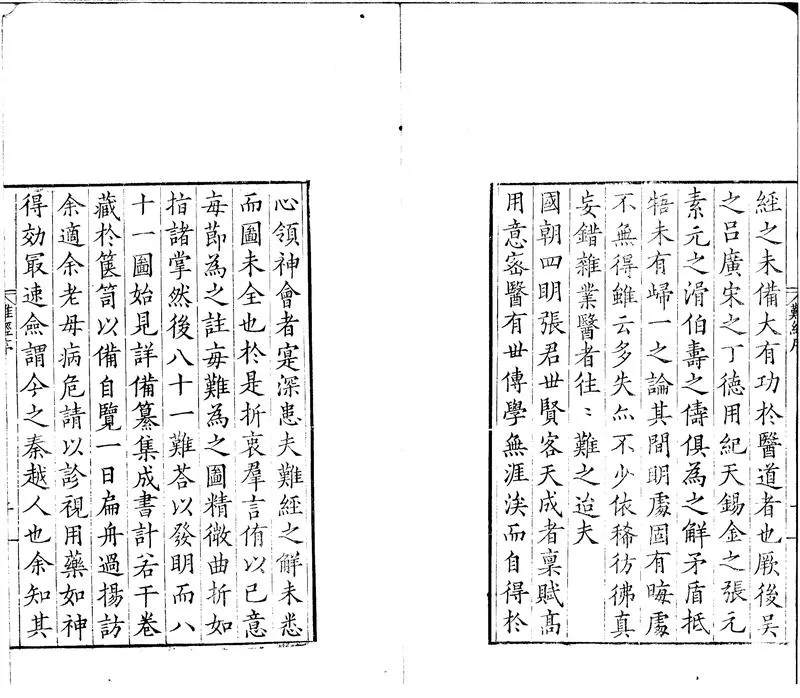 經之未備大有功於醫道者也厥後吳
之呂廣宋之丁德用紀天錫金之張元
素元之滑伯壽之儔俱為之解矛盾抵
牾未有歸一之論其間明處固有晦處
不無得雖云多失亦不少依稀彷彿真
妄錯雜業醫者往〻難之迨夫
國朝四明張君世賢客天成者稟賦高
用意密醫有世傳學無涯涘而自得於
難經序
心領神會者寔深患夫難經之解未悉
而圖未全也於是折衷羣言侑以已意
每節為之註每難為之圖精微曲折如
指諸掌然後八十一難荅以發明而八
十一圖始見詳備纂集成書計若干卷
藏於篋笥以備自覽一日扁舟過揚訪
余適余老母病危請以診視用藥如神
得効最速僉謂今之秦越人也余知其
難經序